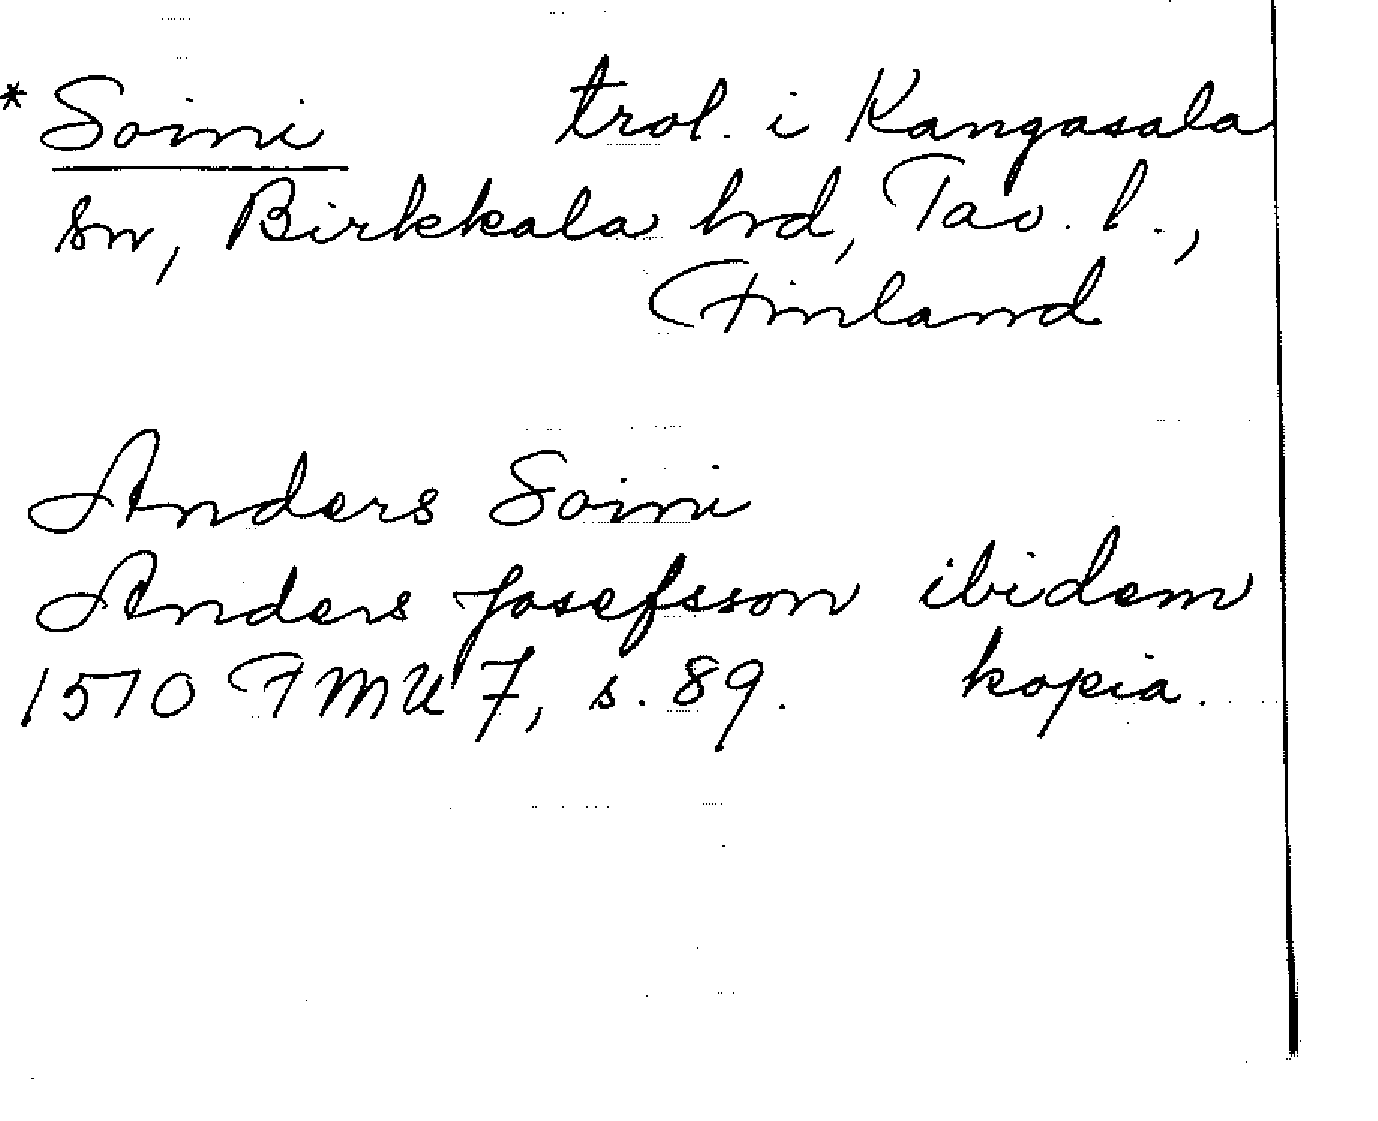 * Soini trol. i Kangasala
sn, Birkkala hrd, Tav. l.,
Finland
Anders Soini
Anders Josefsson ibidem
1510 FMU 7, s. 89. kopia.